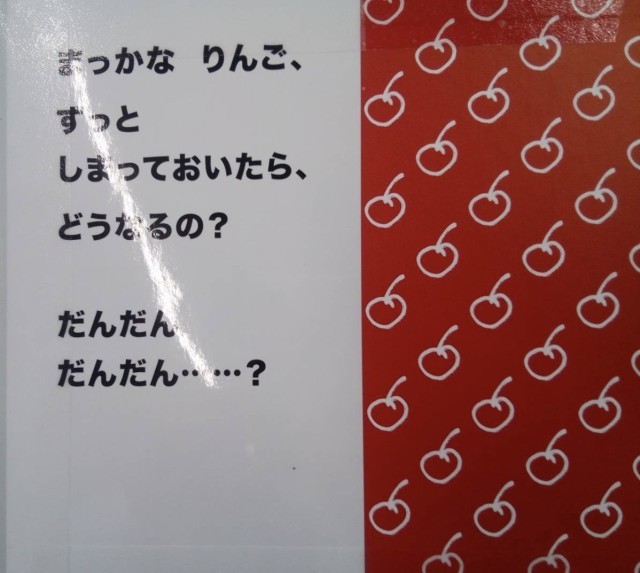 まっかな りんご、
ずっと
しまっておいたら、
どうなるの？
だんだん
だんだん……？